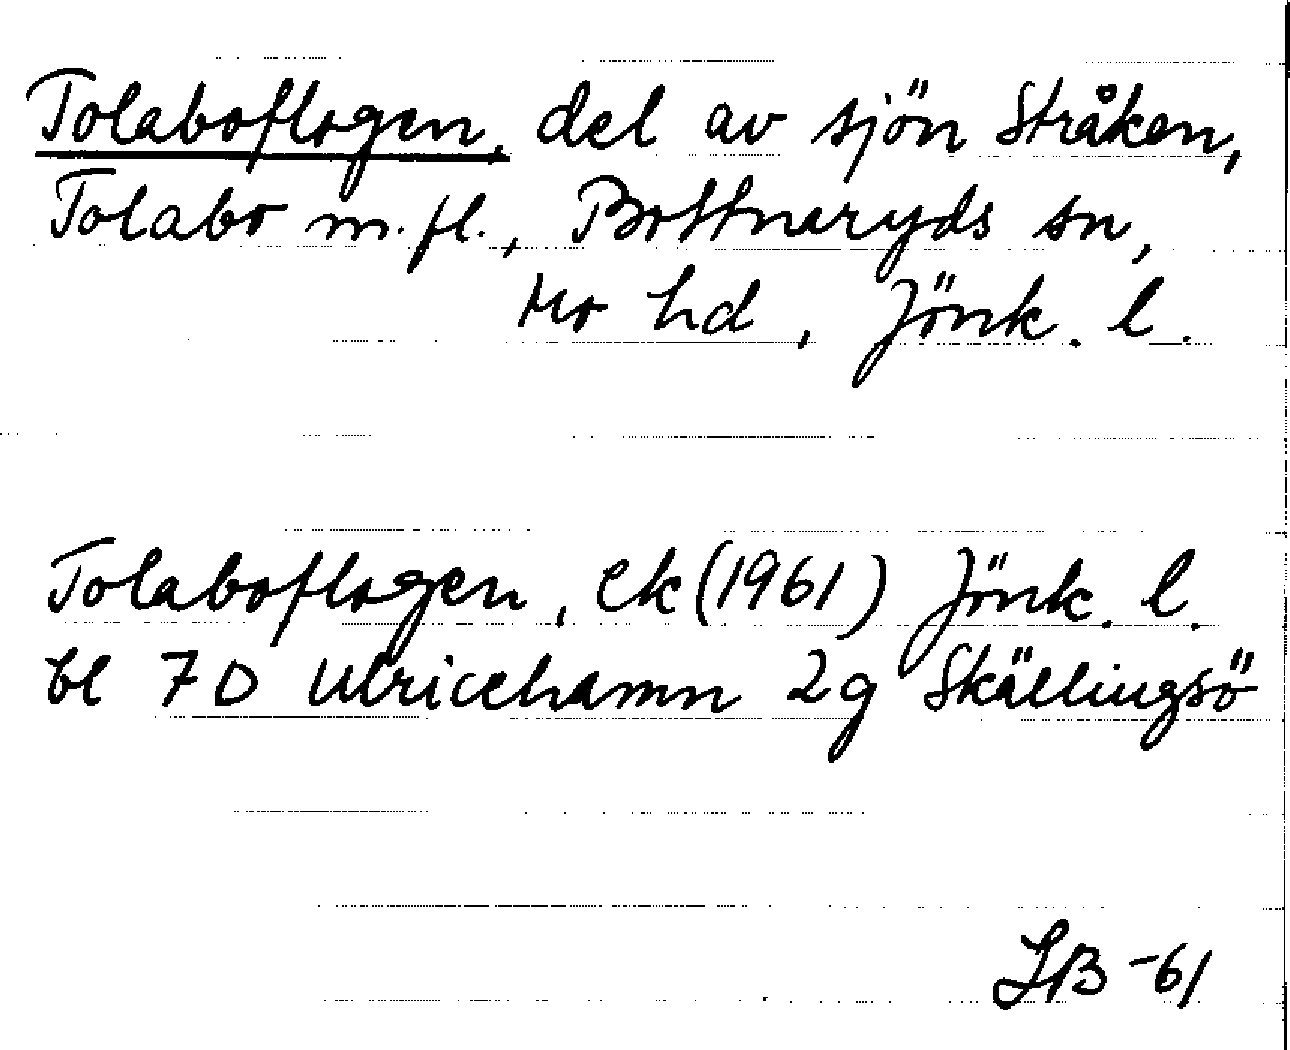 Tolaboflogen, del av sjön Stråken,
Tolabo m.fl., Bottnaryds sn,
Mo hd, Jönk. l.
Tolaboflogen, ek (1961) Jönk. l.
bl 7D Ulricehamn 2g Skällingsö
LB -61